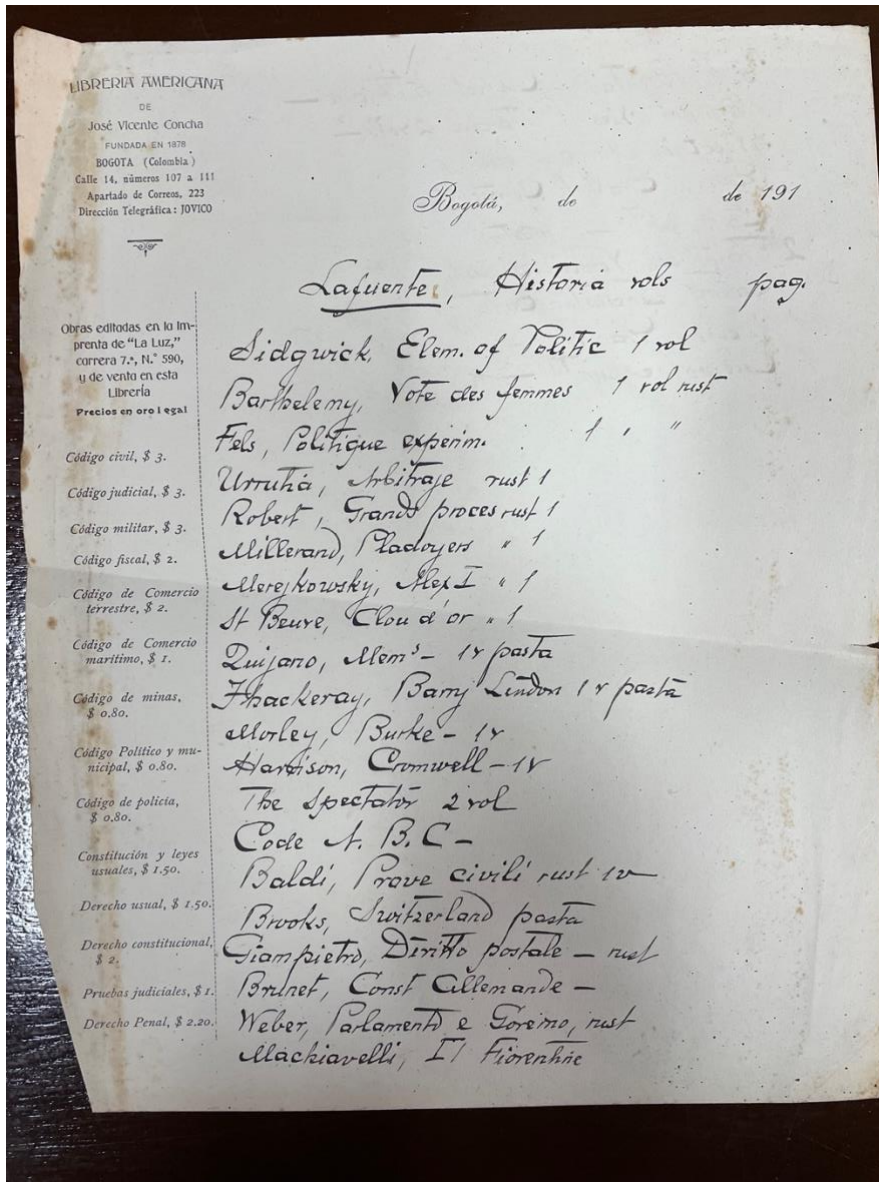 LIBRERIA AMERICANA
DE
José Vicente Concha
FUNDADA EN 1878
BOGOTA (Colombia)
Calle 14, números 107 a 111
Apartado de Correos, 223
Dirección Telegráfica: JOVICO
Bogotá, de de 191
Obras editadas en la Im-
prenta de "La Luz,"
carrera 7.ª, N.° 590,
y de venta en esta
Librería
Precios en oro legal
Código civil, $ 3.
Código judicial, $ 3.
Código militar, $ 3.
Código fiscal, $ 2.
Código de Comercio
terrestre, $ 2.
Código de Comercio
marítimo, $ 1.
Código de minas,
$ 0.80.
Código Político y mu-
nicipal, $ 0.80.
Código de policía,
$ 0.80.
Constitución y leyes
usuales, $ 1.50.
Derecho usual, $ 1.50.
Derecho constitucional,
$ 2.
Pruebas judiciales, $ 1.
Derecho Penal, $ 2.20.
Lafuente, Historia vols pag.
Sidgwick, Elem. of Politic 1 vol
Barthelemy, Vote des femmes 1 vol rust
Fels, Politique experim. 1 " "
Urrutia, Arbitraje rust 1
Robert, Grands proces rust 1
Millerand, Pladoyers " 1
Merejkowsky, Alex I " 1
St Beuve, Clou d'or " 1
Quijano, Mems - 1 v pasta
Thackeray, Barry Lindon 1 v pasta
Morley, Burke - 1 v
Harrison, Cromwell - 1 v
The Spectator 2 vol
Code A. B. C -
Baldi, Prove civili rust 1 v
Brooks, Switzerland pasta
Giampietro, Diritto postale - rust
Brunet, Const Allemande -
Weber, Parlamento e Goremo, rust
Machiavelli, Il Fiorentine